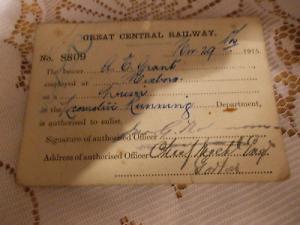 GREAT CENTRAL RAILWAY.
No. S809 Nov 29 1915.
The bearer H. E. Grant
employed at Mexboro
Locomotive Running Department,
is authorised to enlist.
Signature of authorised Officer
Address of authorised Officer Chief Mech Eng
Gorton